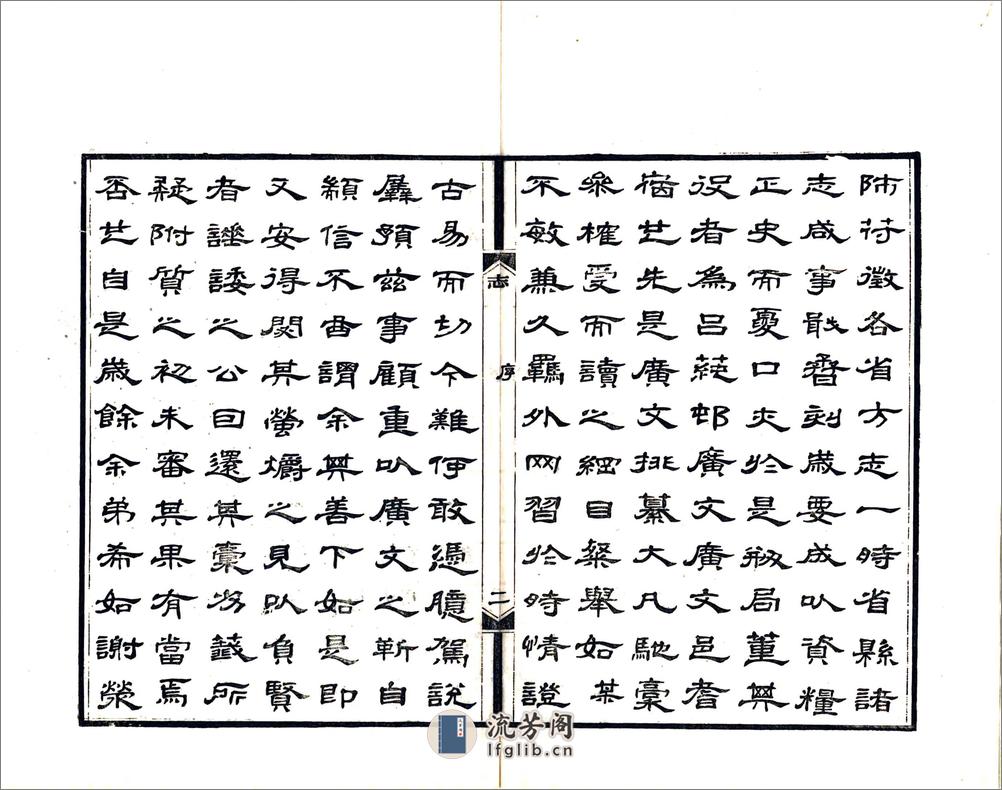 沛符徵各省方志一時省縣諸
志咸事戢舂刻歲要成以資糧
正史而憂口夾於是𠛬局董其
役者為呂蒓邨廣文廣文邑耆
酋也先是廣文排纂大凡馳稾
徵榷受而讀之綱目粲舉如某
不敏兼久羈外网習於時情證
志
序
二
古易而切今難俜敢憑臆駕說
羼預兹事顧重以廣文之靳自
纇信不由謂余其善下如是即
又安得閟其螢爝之見以負賢
者諈諉之公曰還其稾別籤所
疑附質之初未審其果有當焉
否也自是歲餘余弟希如謝滎
流芳阁
lfglib.cn